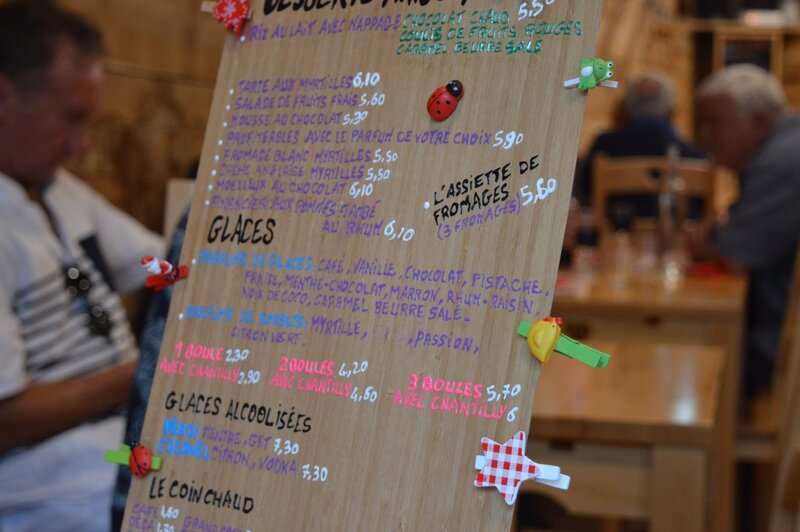 DESSERTS
RIZ AU LAIT AVEC NAPPAGE CHOCOLAT CHAUD 5,50
COULIS DE FRUITS ROUGES
CARAMEL BEURRE SALÉ
• TARTE AUX MYRTILLES 6,10
• SALADE DE FRUITS FRAIS 5,60
• MOUSSE AU CHOCOLAT 5,30
• PROFITEROLES AVEC LE PARFUM DE VOTRE CHOIX 5,90
• FROMAGE BLANC MYRTILLES 5,50
• CRÈME ANGLAISE MYRTILLES 5,50
• MOELLEUX AU CHOCOLAT 6,10
• FINANCIER AUX POMMES FLAMBÉ
AU RHUM 6,10
• L'ASSIETTE DE
FROMAGES 5,60
(3 FROMAGES)
GLACES
• PARFUMS DE GLACES: CAFÉ, VANILLE, CHOCOLAT, PISTACHE,
FRAISE, MENTHE-CHOCOLAT, MARRON, RHUM-RAISIN,
NOIX DE COCO, CARAMEL BEURRE SALÉ.
• PARFUMS DE SORBETS: MYRTILLE, , PASSION,
CITRON VERT.
1 BOULE 2,30
AVEC CHANTILLY 2,90
2 BOULES 4,20
AVEC CHANTILLY 4,60
3 BOULES 5,70
AVEC CHANTILLY 6
GLACES ALCOOLISÉES
MENTHE, GET 7,30
COLONEL CITRON, VODKA 7,30
LE COIN CHAUD
CAFÉ 1,60
DÉCA 1,70 GRAND CAFÉ